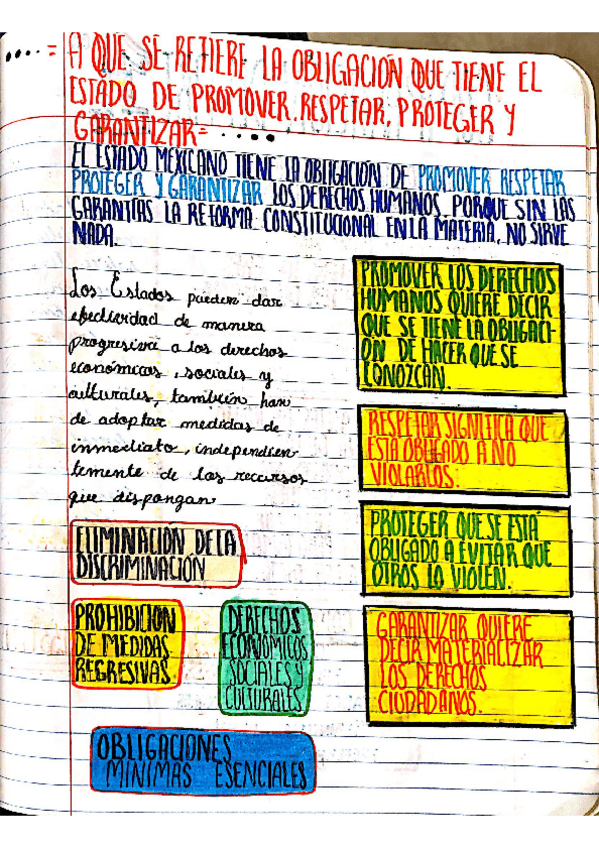 A QUE SE REFIERE LA OBLIGACIÓN QUE TIENE EL
ESTADO DE PROMOVER, RESPETAR, PROTEGER Y
GARANTIZAR=
EL ESTADO MEXICANO TIENE LA OBLIGACIÓN DE PROMOVER RESPETAR
PROTEGER Y GARANTIZAR LOS DERECHOS HUMANOS, PORQUE SIN LAS
GARANTÍAS LA REFORMA CONSTITUCIONAL EN LA MATERIA, NO SIRVE
NADA.
Los Estados pueden dar
efectividad de manera
progresiva a los derechos
económicos, sociales y
culturales, también han
de adoptar medidas de
inmediato, independien
temente de los recursos
que dispongan
ELIMINACIÓN DE LA
DISCRIMINACIÓN
PROHIBICION
DE MEDIDAS
REGRESIVAS.
DERECHOS
ECONÓMICOS
SOCIALES Y
CULTURALES
OBLIGACIONES
MINIMAS ESENCIALES
PROMOVER LOS DERECHOS
HUMANOS QUIERE DECIR
QUE SE TIENE LA OBLIGACI-
ÓN DE HACER QUE SE
CONOZCAN.
RESPETAR SIGNIFICA QUE
ESTA OBLIGADO A NO
VIOLARLOS.
PROTEGER QUE SE ESTÁ
OBLIGADO A EVITAR QUE
OTROS LO VIOLEN.
GARANTIZAR QUIERE
DECIR MATERIALIZAR
LOS DERECHOS
CIUDADANOS.